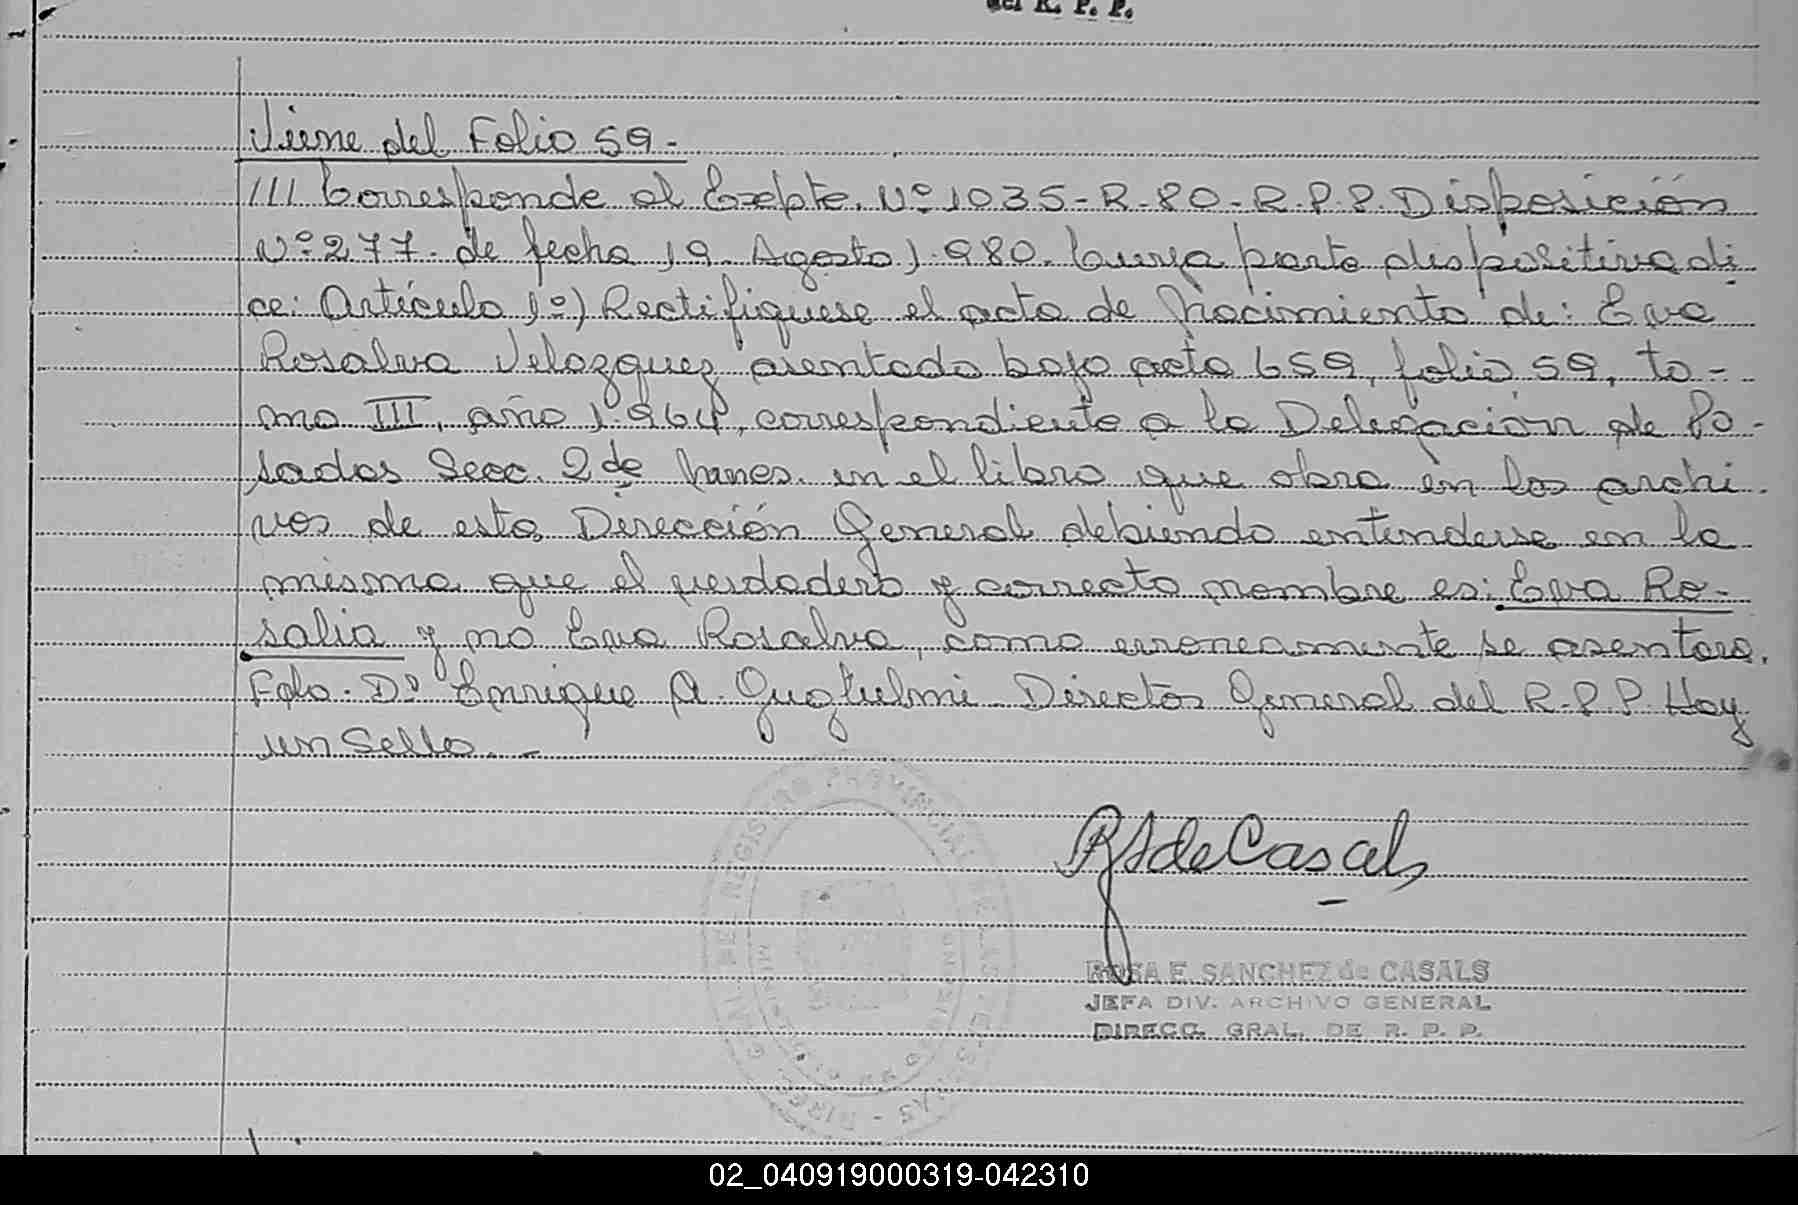 del R. P. P.
Viene del Folio 59-
III Corresponde al Expte. Nº 1035-R-80-R.P.P. Disposición
Nº 277. de fecha 19. Agosto 1.980. Cuya parte dispositiva di
ce: Artículo 1º) Rectifiquese el acta de Nacimiento de: Eva
Rosalva Velazquez asentada bajo acta 659, folio 59, to-
mo III, año 1.964, correspondiente a la Delegación de Po-
sadas Secc. 2 de Mnes. en el libro que obra en los archi
vos de esta Dirección General debiendo entenderse en la
misma que el verdadero y correcto nombre es: Eva Ro-
salia y no Eva Rosalva, como erroneamente se asentara.
Fdo: Dr Enrique A. Guglielmi Director General del R.P.P. Hay
un Sello.-
RSdeCasals
ROSA E. SANCHEZ de CASALS
JEFA DIV. ARCHIVO GENERAL
DIRECC. GRAL. DE R. P. P.
REGISTRO PROVINCIAL DE LAS PERSONAS
02_040919000319-042310